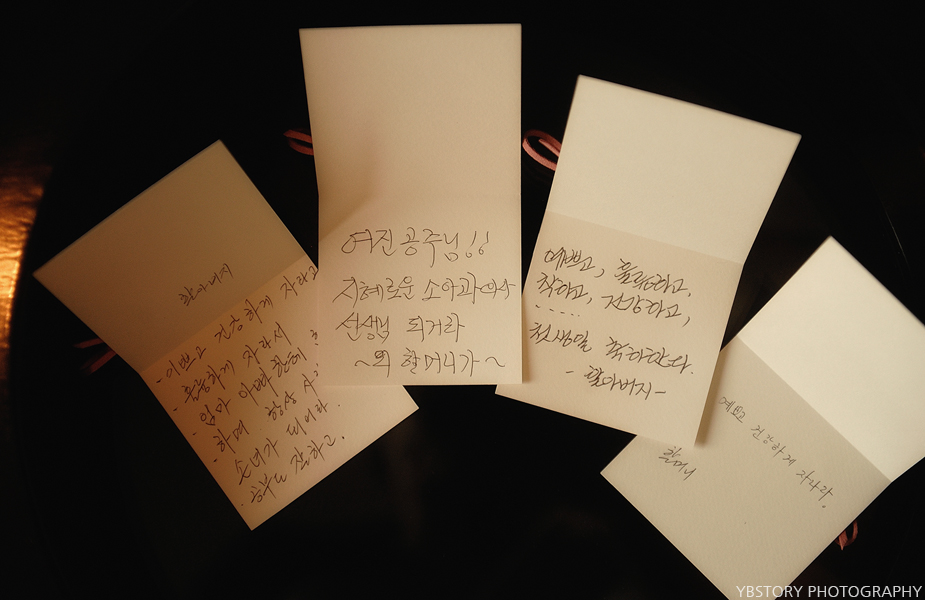 할아버지
- 이쁘고 건강하게 자라고
- 훌륭하게 자라서
- 엄마 아빠 한테 효도
- 하며 항상
손녀가 되어라.
. 공부도 잘하고.
여진 공주님!!
지혜로운 소아과 의사
선생님 되거라
~외 할머니가~
예쁘고, 훌륭하고,
착하고, 건강하고,
-----
첫 생일 축하한다.
- 할아버지 -
예쁘고 건강하게 자라라.
할머니
YBSTORY PHOTOGRAPHY